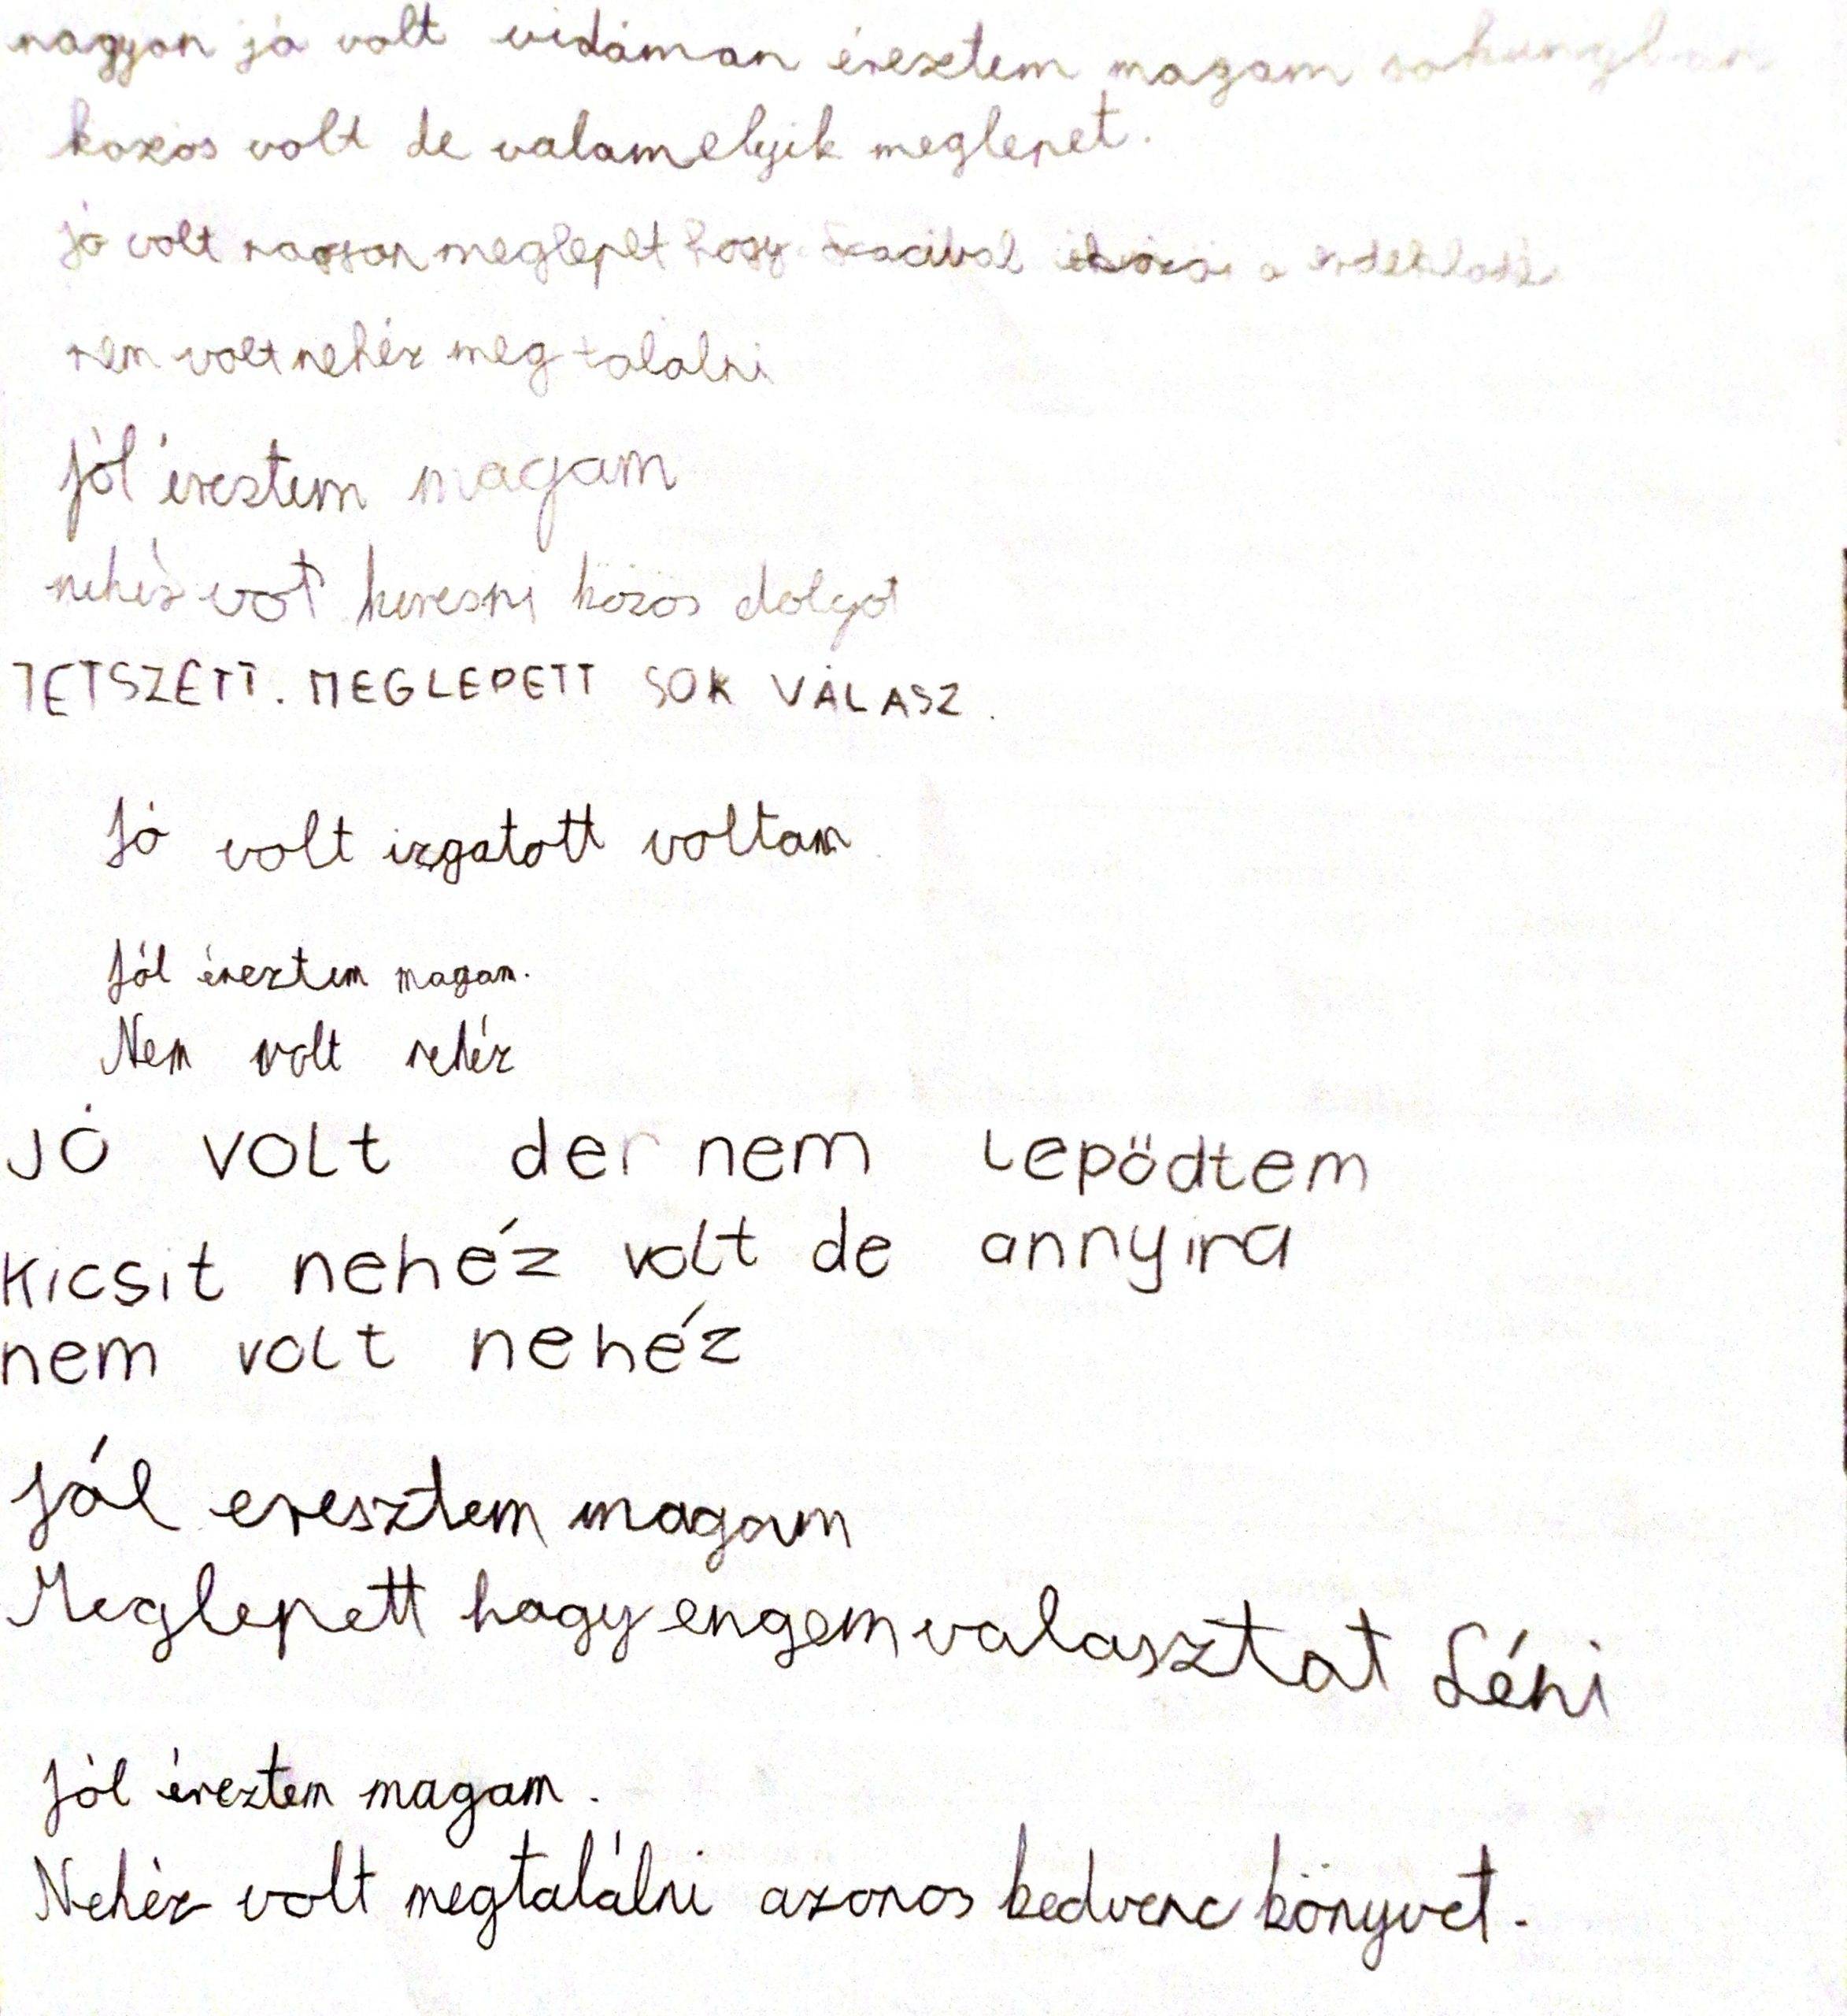 nagyon jó volt vidáman éreztem magam
kozos volt de valamelyik meglepet.
jó volt nagyon meglepet hogy a
nem volt nehéz meg talalni
jól éreztem magam
nehéz vot keresni közos dolgot
TETSZETT. MEGLEPETT SOK VÁLASZ.
Jó volt izgatott voltam
Jól éreztem magam.
Nem volt nehéz
JÓ VOLt der nem Lepödtem
Kicsit nehéz volt de annyira
nem volt nehéz
Jól eresztem magam
Meglepett hogy engem valasztat Léni
Jól éreztem magam.
Nehéz volt megtalálni azonos kedvenc könyvet.